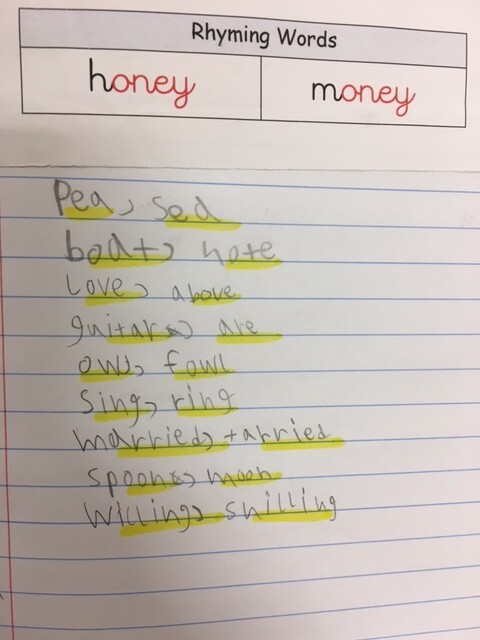 Rhyming Words
honey money
Pea, sea
boat, note
Love, above
guitar, are
owl, fowl
sing, ring
married, tarried
spoon, moon
Willing, shilling